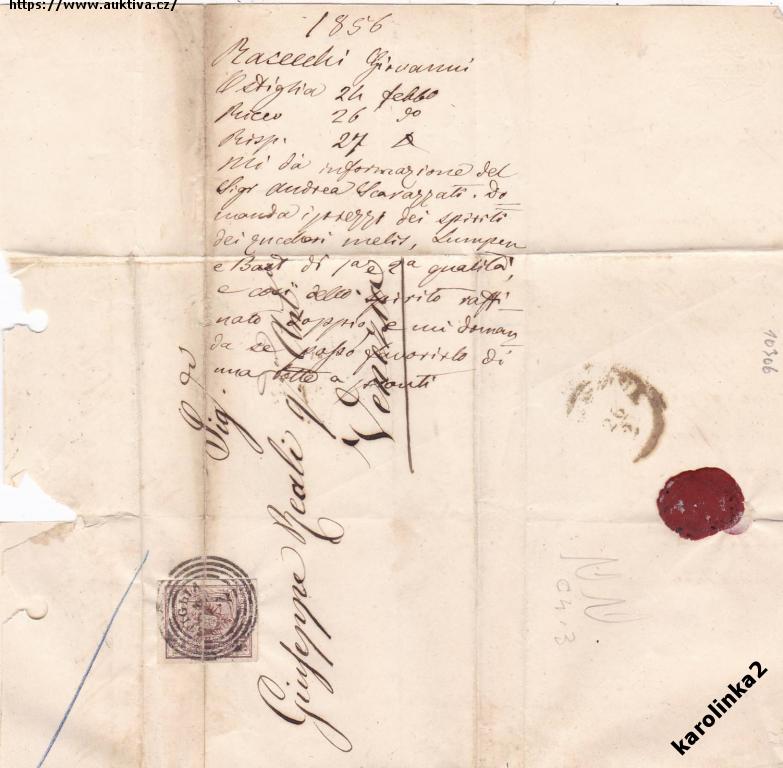 https://www.auktiva.cz/
1856
Racecchi Giovanni
Ostiglia 24 febbo
Ricev 26 do
Risp. 27
Mi dà informazione del
Sigr Andrea Scarazzati. Do
manda i prezzi dei spiriti
dei zuccheri melis, Lumpen
e Bast di 1a e 2a qualità,
e così dello spirito raffi
nato doppio, e mi doman
da se posso favorirlo di
una
Sig.
Giuseppe Reali q. Ant.
Venezia
26
10306
Ch. 3
karolinka2